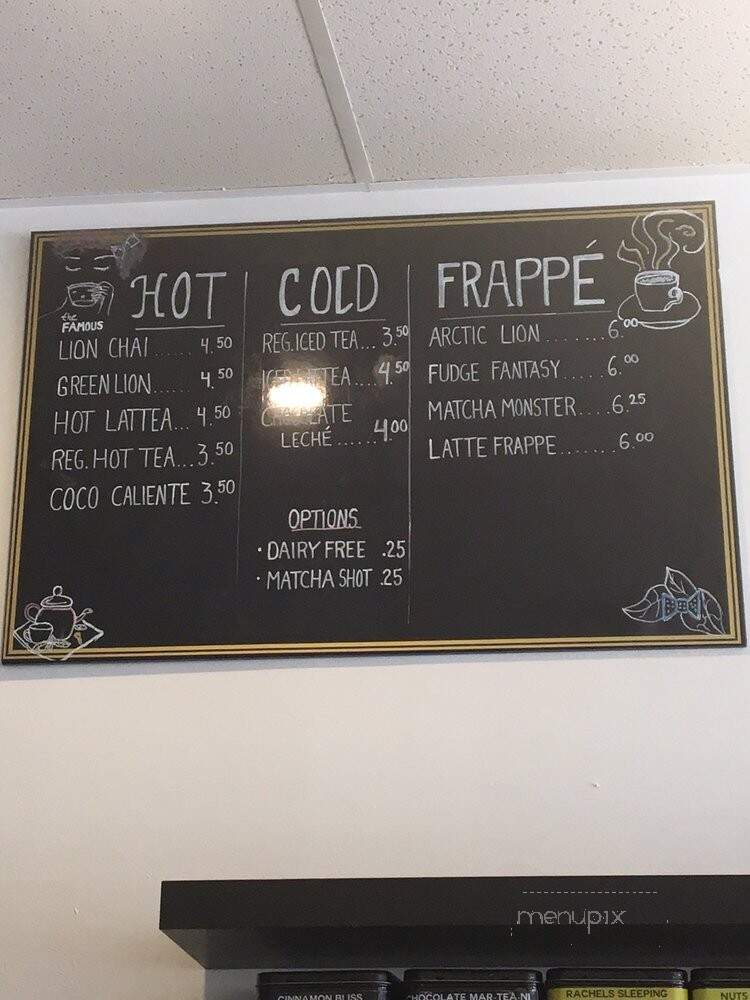 HOT
the
FAMOUS
LION CHAI ..... 4.50
GREEN LION..... 4.50
HOT LATTEA... 4.50
REG. HOT TEA...3.50
COCO CALIENTE 3.50
COLD
REG.ICED TEA... 3.50
ICED LATTEA....4.50
CHOCOLATE
LECHÉ......4.00
OPTIONS
· DAIRY FREE .25
· MATCHA SHOT .25
FRAPPÉ
ARCTIC LION........6.00
FUDGE FANTASY.....6.00
MATCHA MONSTER....6.25
LATTE FRAPPE.......6.00
menupix
CINNAMON BLISS
CHOCOLATE MAR-TEA-NI
RACHELS SLEEPING
NUTS